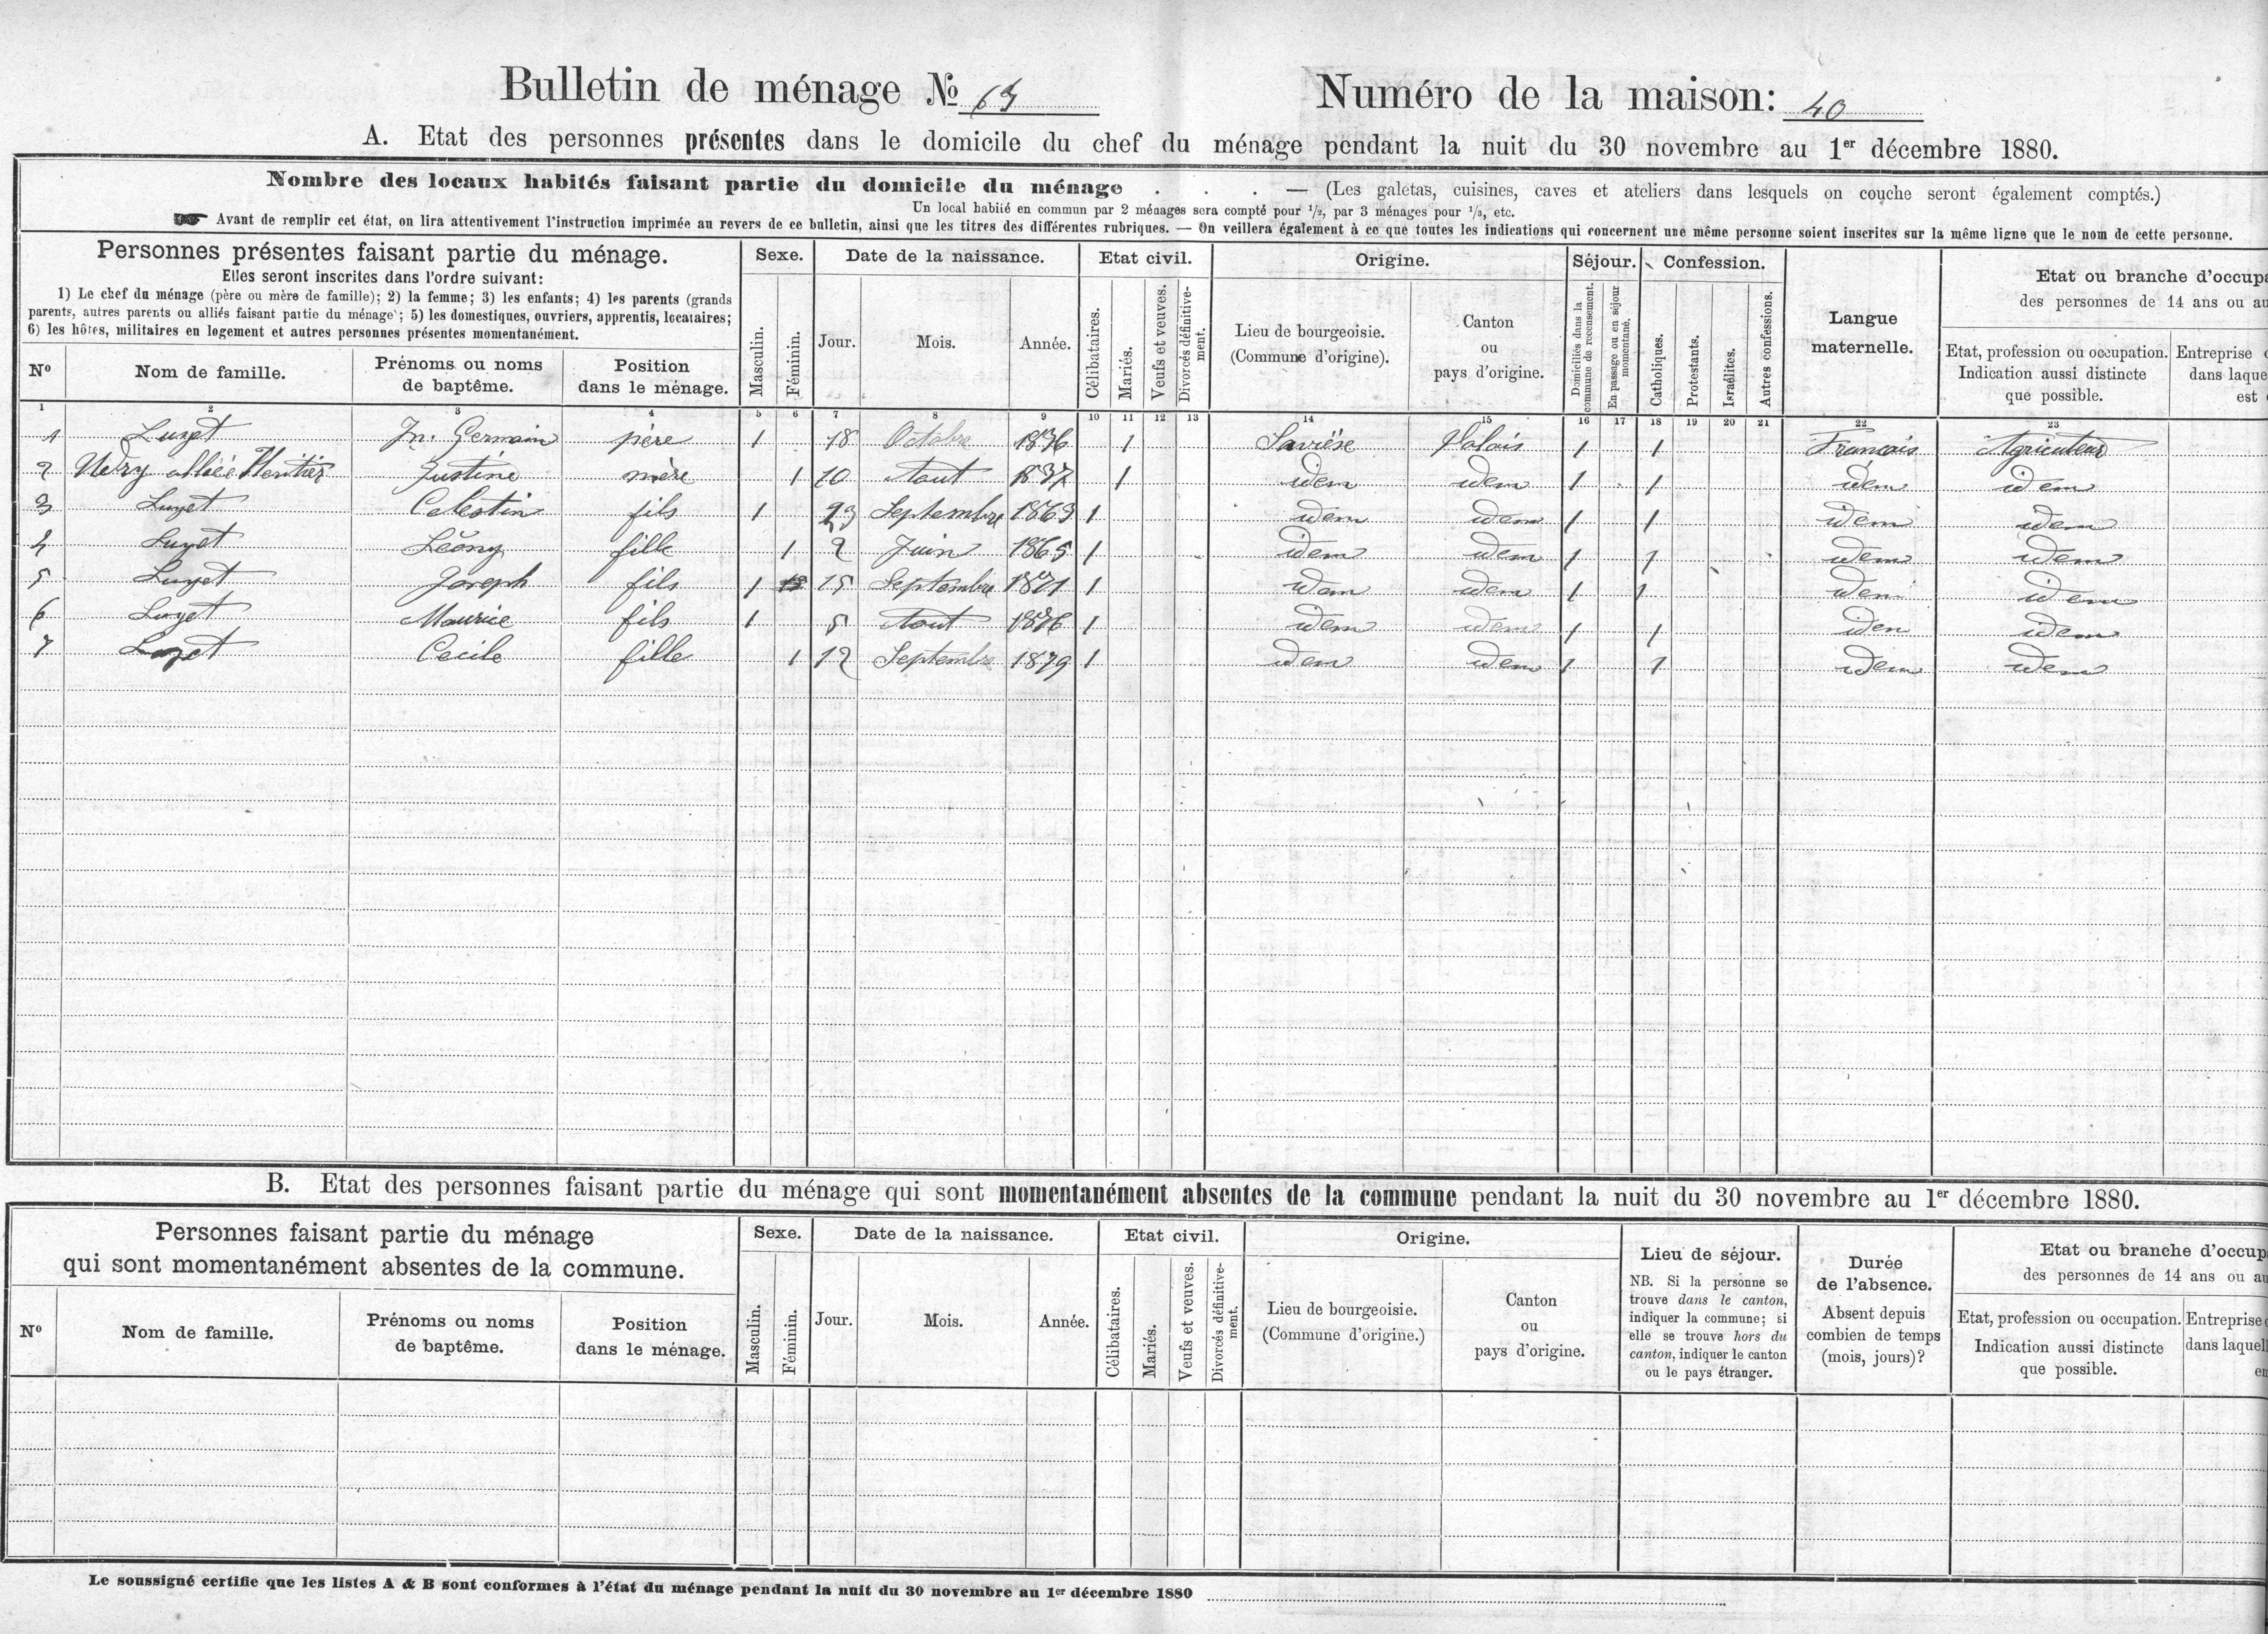 Bulletin de ménage № 63
Numéro de la maison: 40
A. Etat des personnes présentes dans le domicile du chef du ménage pendant la nuit du 30 novembre au 1er décembre 1880.
Nombre des locaux habités faisant partie du domicile du ménage . . . — (Les galetas, cuisines, caves et ateliers dans lesquels on couche seront également comptés.)
Un local habité en commun par 2 ménages sera compté pour 1/2, par 3 ménages pour 1/3, etc.
☛ Avant de remplir cet état, on lira attentivement l'instruction imprimée au revers de ce bulletin, ainsi que les titres des différentes rubriques. — On veillera également à ce que toutes les indications qui concernent une même personne soient inscrites sur la même ligne que le nom de cette personne.
Personnes présentes faisant partie du ménage.
Elles seront inscrites dans l'ordre suivant:
1) Le chef du ménage (père ou mère de famille); 2) la femme; 3) les enfants; 4) les parents (grands
parents, autres parents ou alliés faisant partie du ménage; 5) les domestiques, ouvriers, apprentis, locataires;
6) les hôtes, militaires en logement et autres personnes présentes momentanément.
Nº Nom de famille. Prénoms ou noms de baptême. Position dans le ménage.
Sexe. Masculin. Féminin.
Date de la naissance. Jour. Mois. Année.
Etat civil. Célibataires. Mariés. Veufs et veuves. Divorcés définitivement.
Origine. Lieu de bourgeoisie. (Commune d'origine). Canton ou pays d'origine.
Séjour. Domiciliés dans la commune de recensement. En passage ou en séjour momentané.
Confession. Catholiques. Protestants. Israélites. Autres confessions.
Langue maternelle.
Etat ou branche d'occupa
des personnes de 14 ans ou au
Etat, profession ou occupation. Indication aussi distincte que possible.
Entreprise
dans laque
est
1 2 3 4 5 6 7 8 9 10 11 12 13 14 15 16 17 18 19 20 21 22 23
1 Luyet Jn. Germain père 1 18 Octobre 1836 1 Savièse Valais 1 1 Français Agriculteur
2 Udry alliée Heritier Justine mère 1 10 Aout 1837 1 idem idem 1 1 idem idem
3 Luyet Celestin fils 1 23 Septembre 1863 1 idem idem 1 1 idem idem
4 Luyet Léony fille 1 2 Juin 1865 1 idem idem 1 1 idem idem
5 Luyet Joseph fils 1 15 Septembre 1871 1 idem idem 1 1 idem idem
6 Luyet Maurice fils 1 5 Aout 1876 1 idem idem 1 1 idem idem
7 Luyet Cecile fille 1 12 Septembre 1879 1 idem idem 1 1 idem idem
B. Etat des personnes faisant partie du ménage qui sont momentanément absentes de la commune pendant la nuit du 30 novembre au 1er décembre 1880.
Personnes faisant partie du ménage
qui sont momentanément absentes de la commune.
Nº Nom de famille. Prénoms ou noms de baptême. Position dans le ménage.
Sexe. Masculin. Féminin.
Date de la naissance. Jour. Mois. Année.
Etat civil. Célibataires. Mariés. Veufs et veuves. Divorcés définitivement.
Origine. Lieu de bourgeoisie. (Commune d'origine.) Canton ou pays d'origine.
Lieu de séjour.
NB. Si la personne se
trouve dans le canton,
indiquer la commune; si
elle se trouve hors du
canton, indiquer le canton
ou le pays étranger.
Durée
de l'absence.
Absent depuis
combien de temps
(mois, jours)?
Etat ou branche d'occup
des personnes de 14 ans ou au
Etat, profession ou occupation. Indication aussi distincte que possible.
Entreprise
dans laquell
en
Le soussigné certifie que les listes A & B sont conformes à l'état du ménage pendant la nuit du 30 novembre au 1er décembre 1880